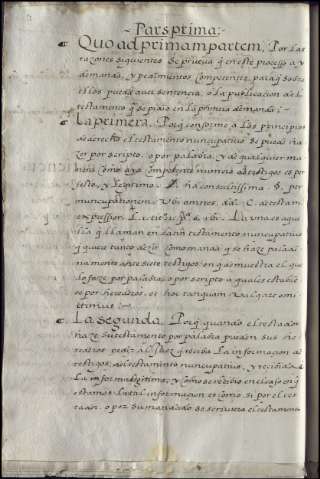 Pars prima:
Quo ad primam partem. Por las
razones siguientes se prueua q̃ en este processo ay
demanda, y pedimientos competentes, para q̃ sobre
ellos pueda auer sentencia, o la publicacion del
testamento q̃ se pide en la primera demanda:
La primera. Porq̃ conforme a los principios
de derecho el testamento nuncupatiuo se puede ha
zer por scripto, o por palabra, y de qualquier ma
nera como aya competente numero de testigos es per
fecto, y legitimo. L. hac consultissima. §. per
nuncupationem. Vbi omnes. C. de testam.
La vna es aque
lla q̃ llaman en latin testamento nuncupatiuo
q̃ quiere dezir como manda q̃ se haze paladi
namente ante siete testigos en q̃ demuestra el que
lo faze por palabra, o por scripto a quales establesce
por herederos, et hoc tanquam
La segunda. Porq̃ quando el testador
haze su testamento por palabra pueden sus he
rederos pedir al Juez q̃ reciba la informacion de
testigos, del testamento nuncupatiuo, y recibida
la informacion legitima, y como se recibio en el caso en q̃
estamos, la tal informacion es como si por el tes
tador, o por su mandado se scriuiera el testamento